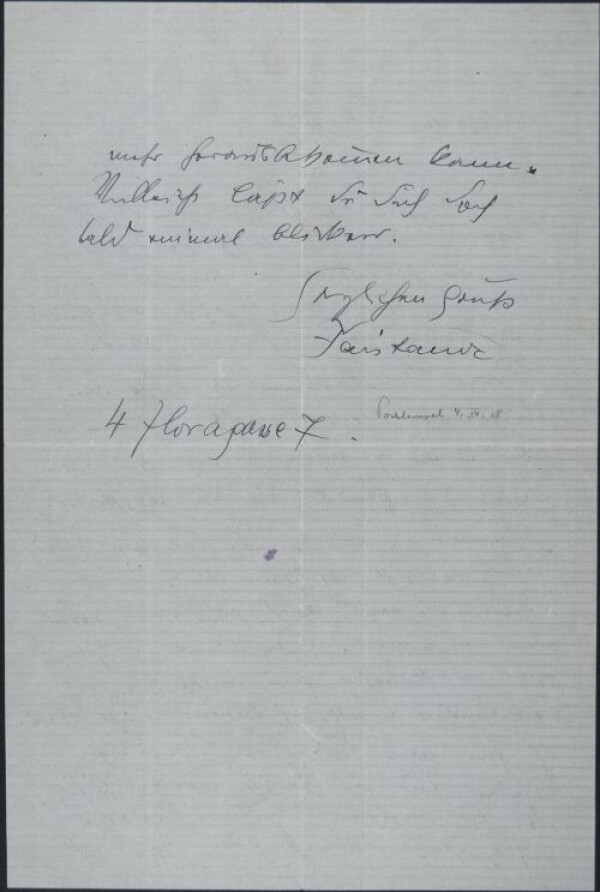 mehr herauskommen kann.
Vielleicht läßt Du Dich doch
bald einmal blicken.
Herzlichen Gruß
4 Floragasse 7.
4. IV. 18